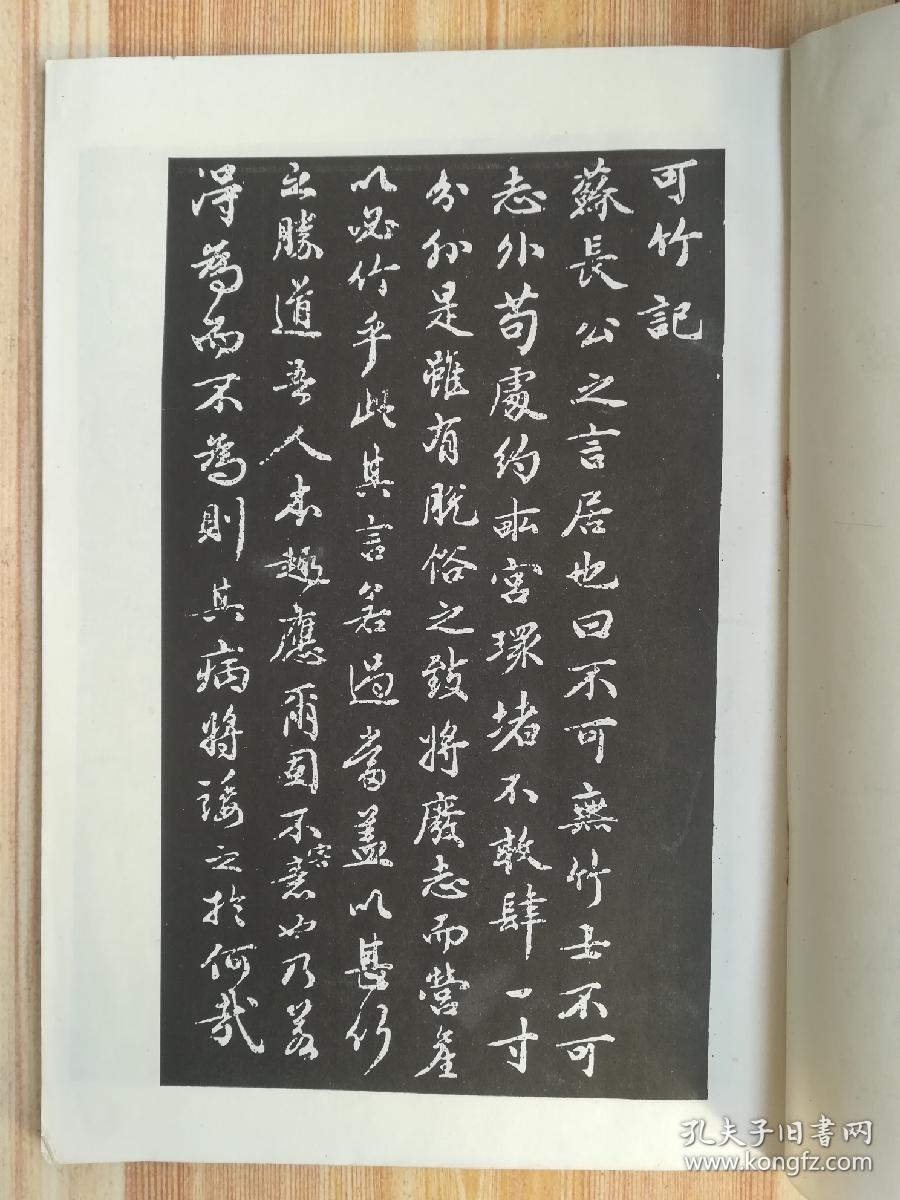 可竹記
蘇長公之言居也曰不可無竹士不可
志外苟處約畝宮環堵不敢肆一寸
分外是雖有脫俗之致將廢志而營產
以必竹乎此其言若過當蓋以甚竹
之勝道吾人本趣應爾固不容意也乃若
得為而不為則其病將諉之於何哉
孔夫子旧书网
www.kongfz.com